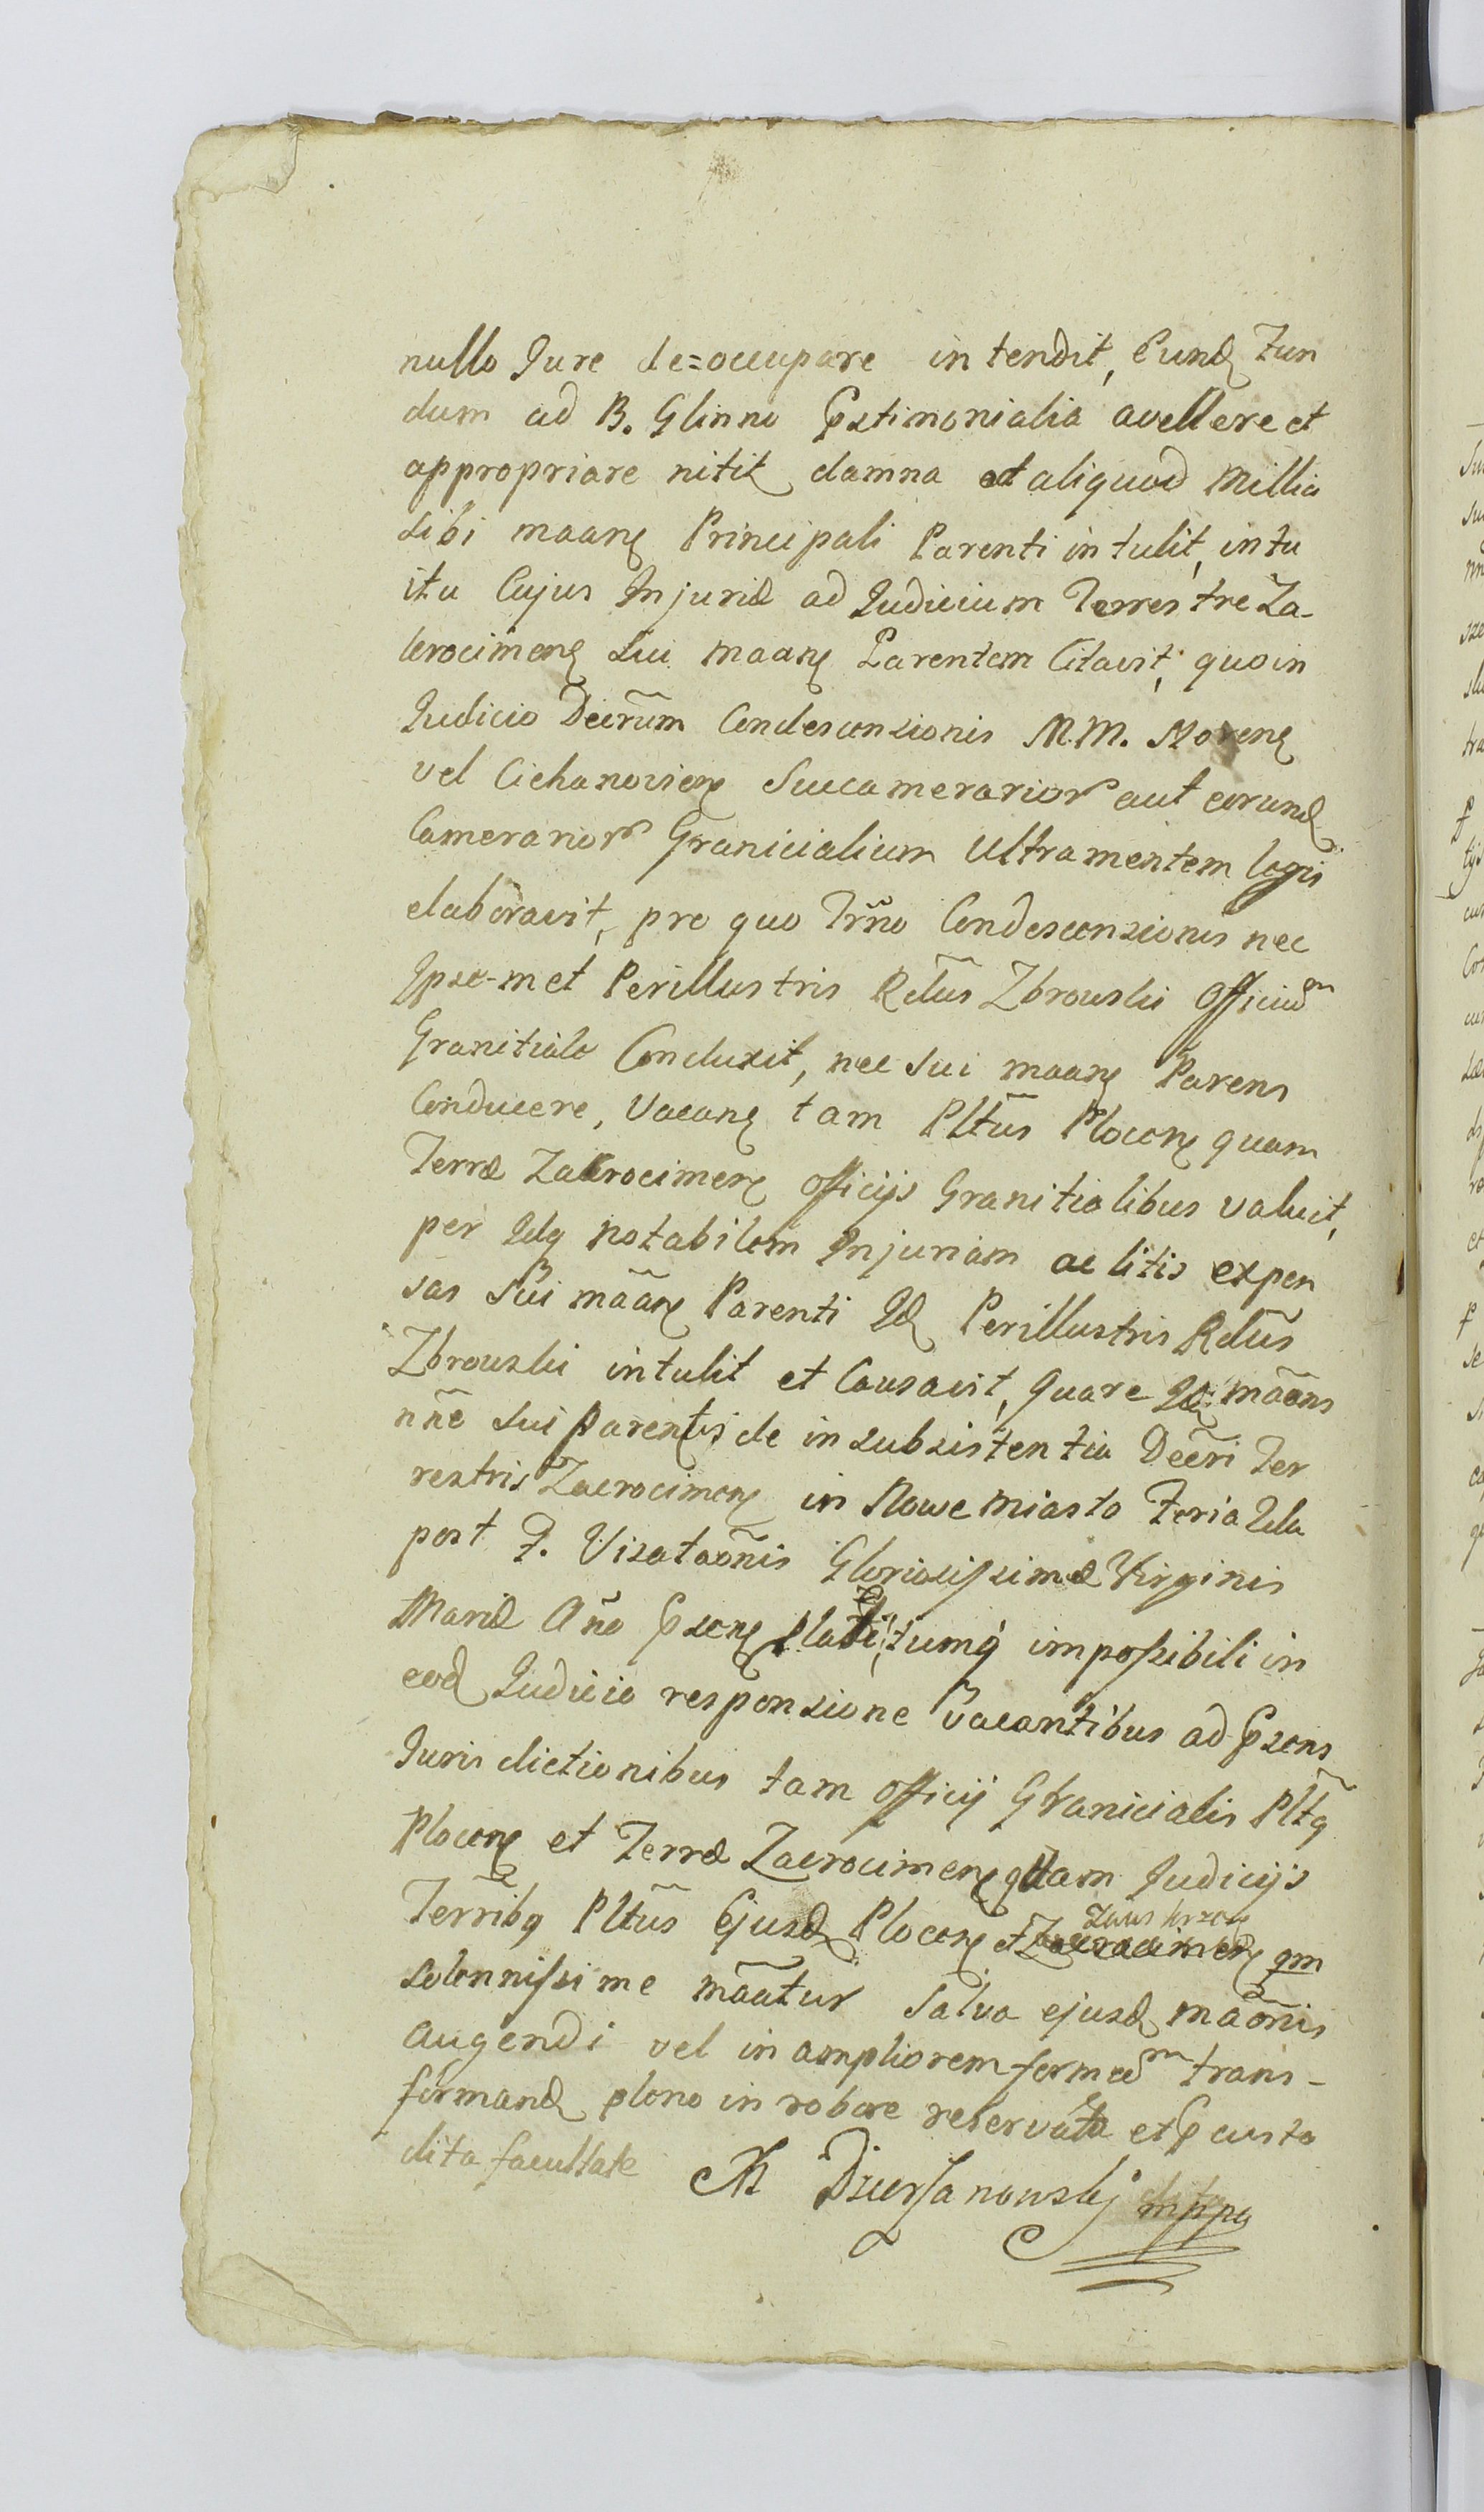 nullo Jure de=occupare intendit, Eund fun
dum ad B. Glinno Pstimonialia avellere et
appropriare nitit damna ad aliquod Millia
sibi maan Principali Parenti intulit, intu
itu Cujus Injuriæ ad Judicium Terrestre Za-
krocimens sui maan Parentem Citavit, quo in
Judicio Decrum Condescensionis M.M. Novens
vel Ciehanovien Succamerarior aut eorund
Camerarior Granicialium Ultra mentem legis
elaboravit, pro quo Trno Condescensionis nec
Ipse-met Perillustris Rdus Zbrouski Officium
Granitiale Conduxit, nec sui maan Parens
Conducere, Vacan tam Pltus Plocen quam
Terræ Zakrocimen Officijs Granitialibus valuit,
per Idq notabilem Injuriam ac litis expen
sas Sui maan Parenti Id Perillustris Rdus
Zbrouski intulit et Causavit, Quare Id maans
nne sui Parentis de insubsistentia Decri Ter
restris Zacrocimen in Nowe miasto Feria IIda
post F. Visataonis Gloriosissimæ Virginis
Mariæ Ano Psen lati, tumq impossibili in
eod Judicio responsione Vacantibus ad Psens
Jurisdictionibus tam Officij Granicialis Pltq
Plocen et Terræ Zacrocimen quam Judicijs
Terribq Pltus Ejusd Plocen et Zacrocimen qm
solennissime maatur Salva ejusd maonis
augendi vel in ampliorem formam trans-
formand pleno in robore reservata et P custo
dita facultate M Dzierzanowski mppa